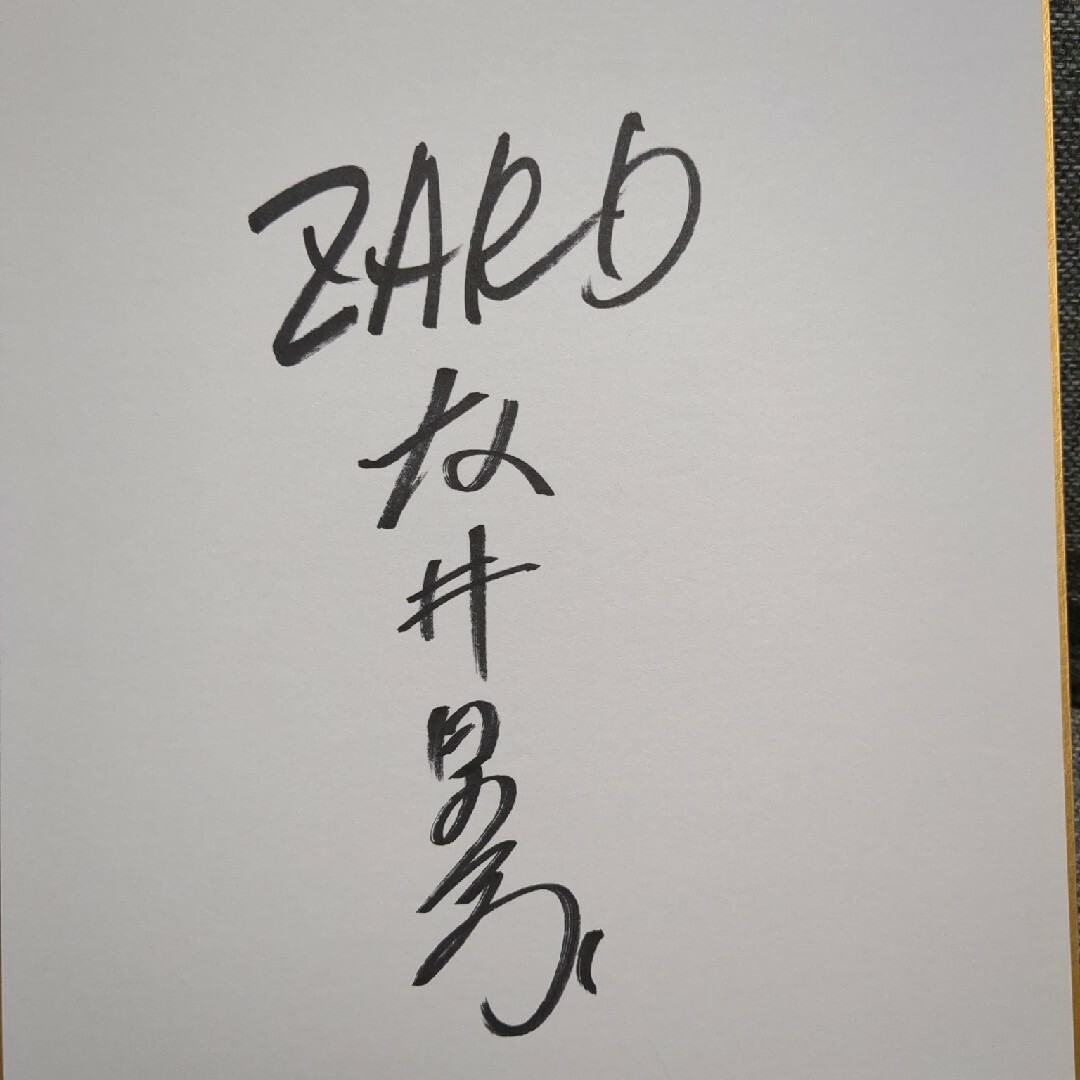 ZARD
坂井泉水